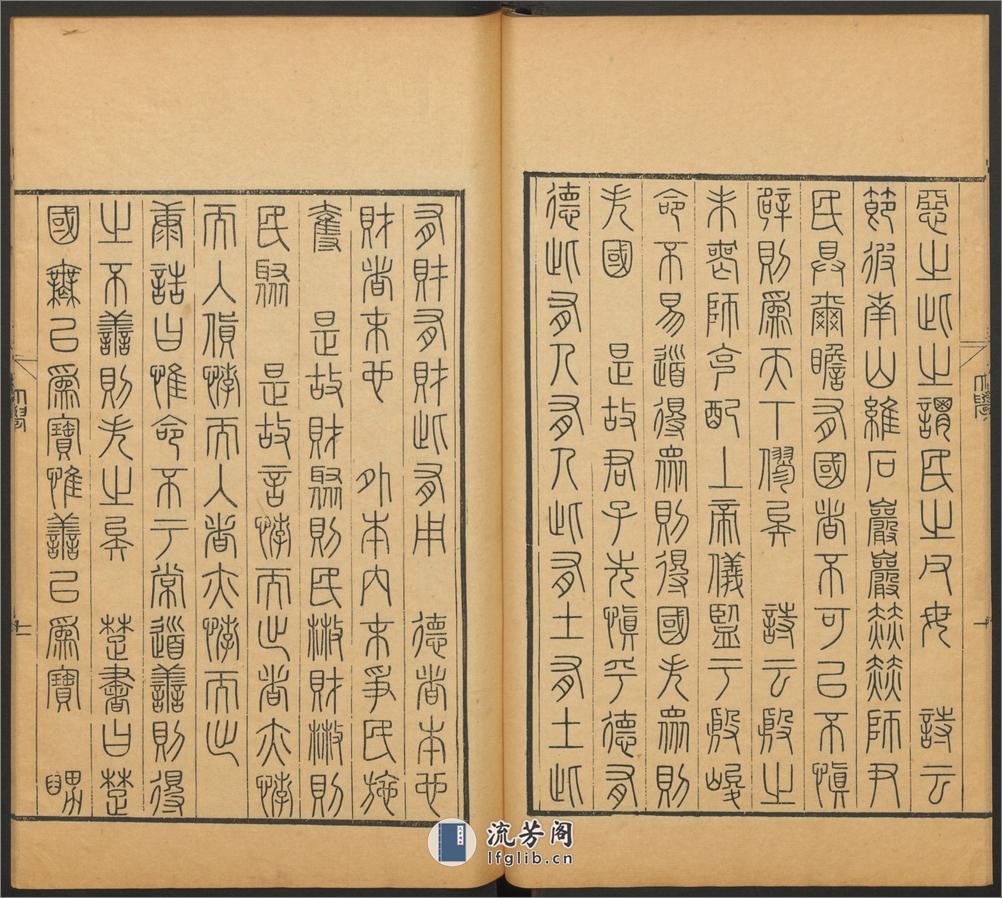 惡之此之謂民之父母　詩云
節彼南山維石巖巖赫赫師尹
民具爾瞻有國者不可以不慎
辟則爲天下僇矣　詩云殷之
未喪師克配上帝儀監于殷峻
命不易道得眾則得國失眾則
失國　是故君子先慎乎德有
德此有人有人此有土有土此
有財有財此有用　德者本也
財者末也　外本內末爭民施
奪　是故財聚則民散財散則
民聚　是故言悖而出者亦悖
而入貨悖而入者亦悖而出
康誥曰惟命不于常道善則得
之不善則失之矣　楚書曰楚
國無以爲寶惟善以爲寶　舅
大學
大學
流芳阁
lfglib.cn